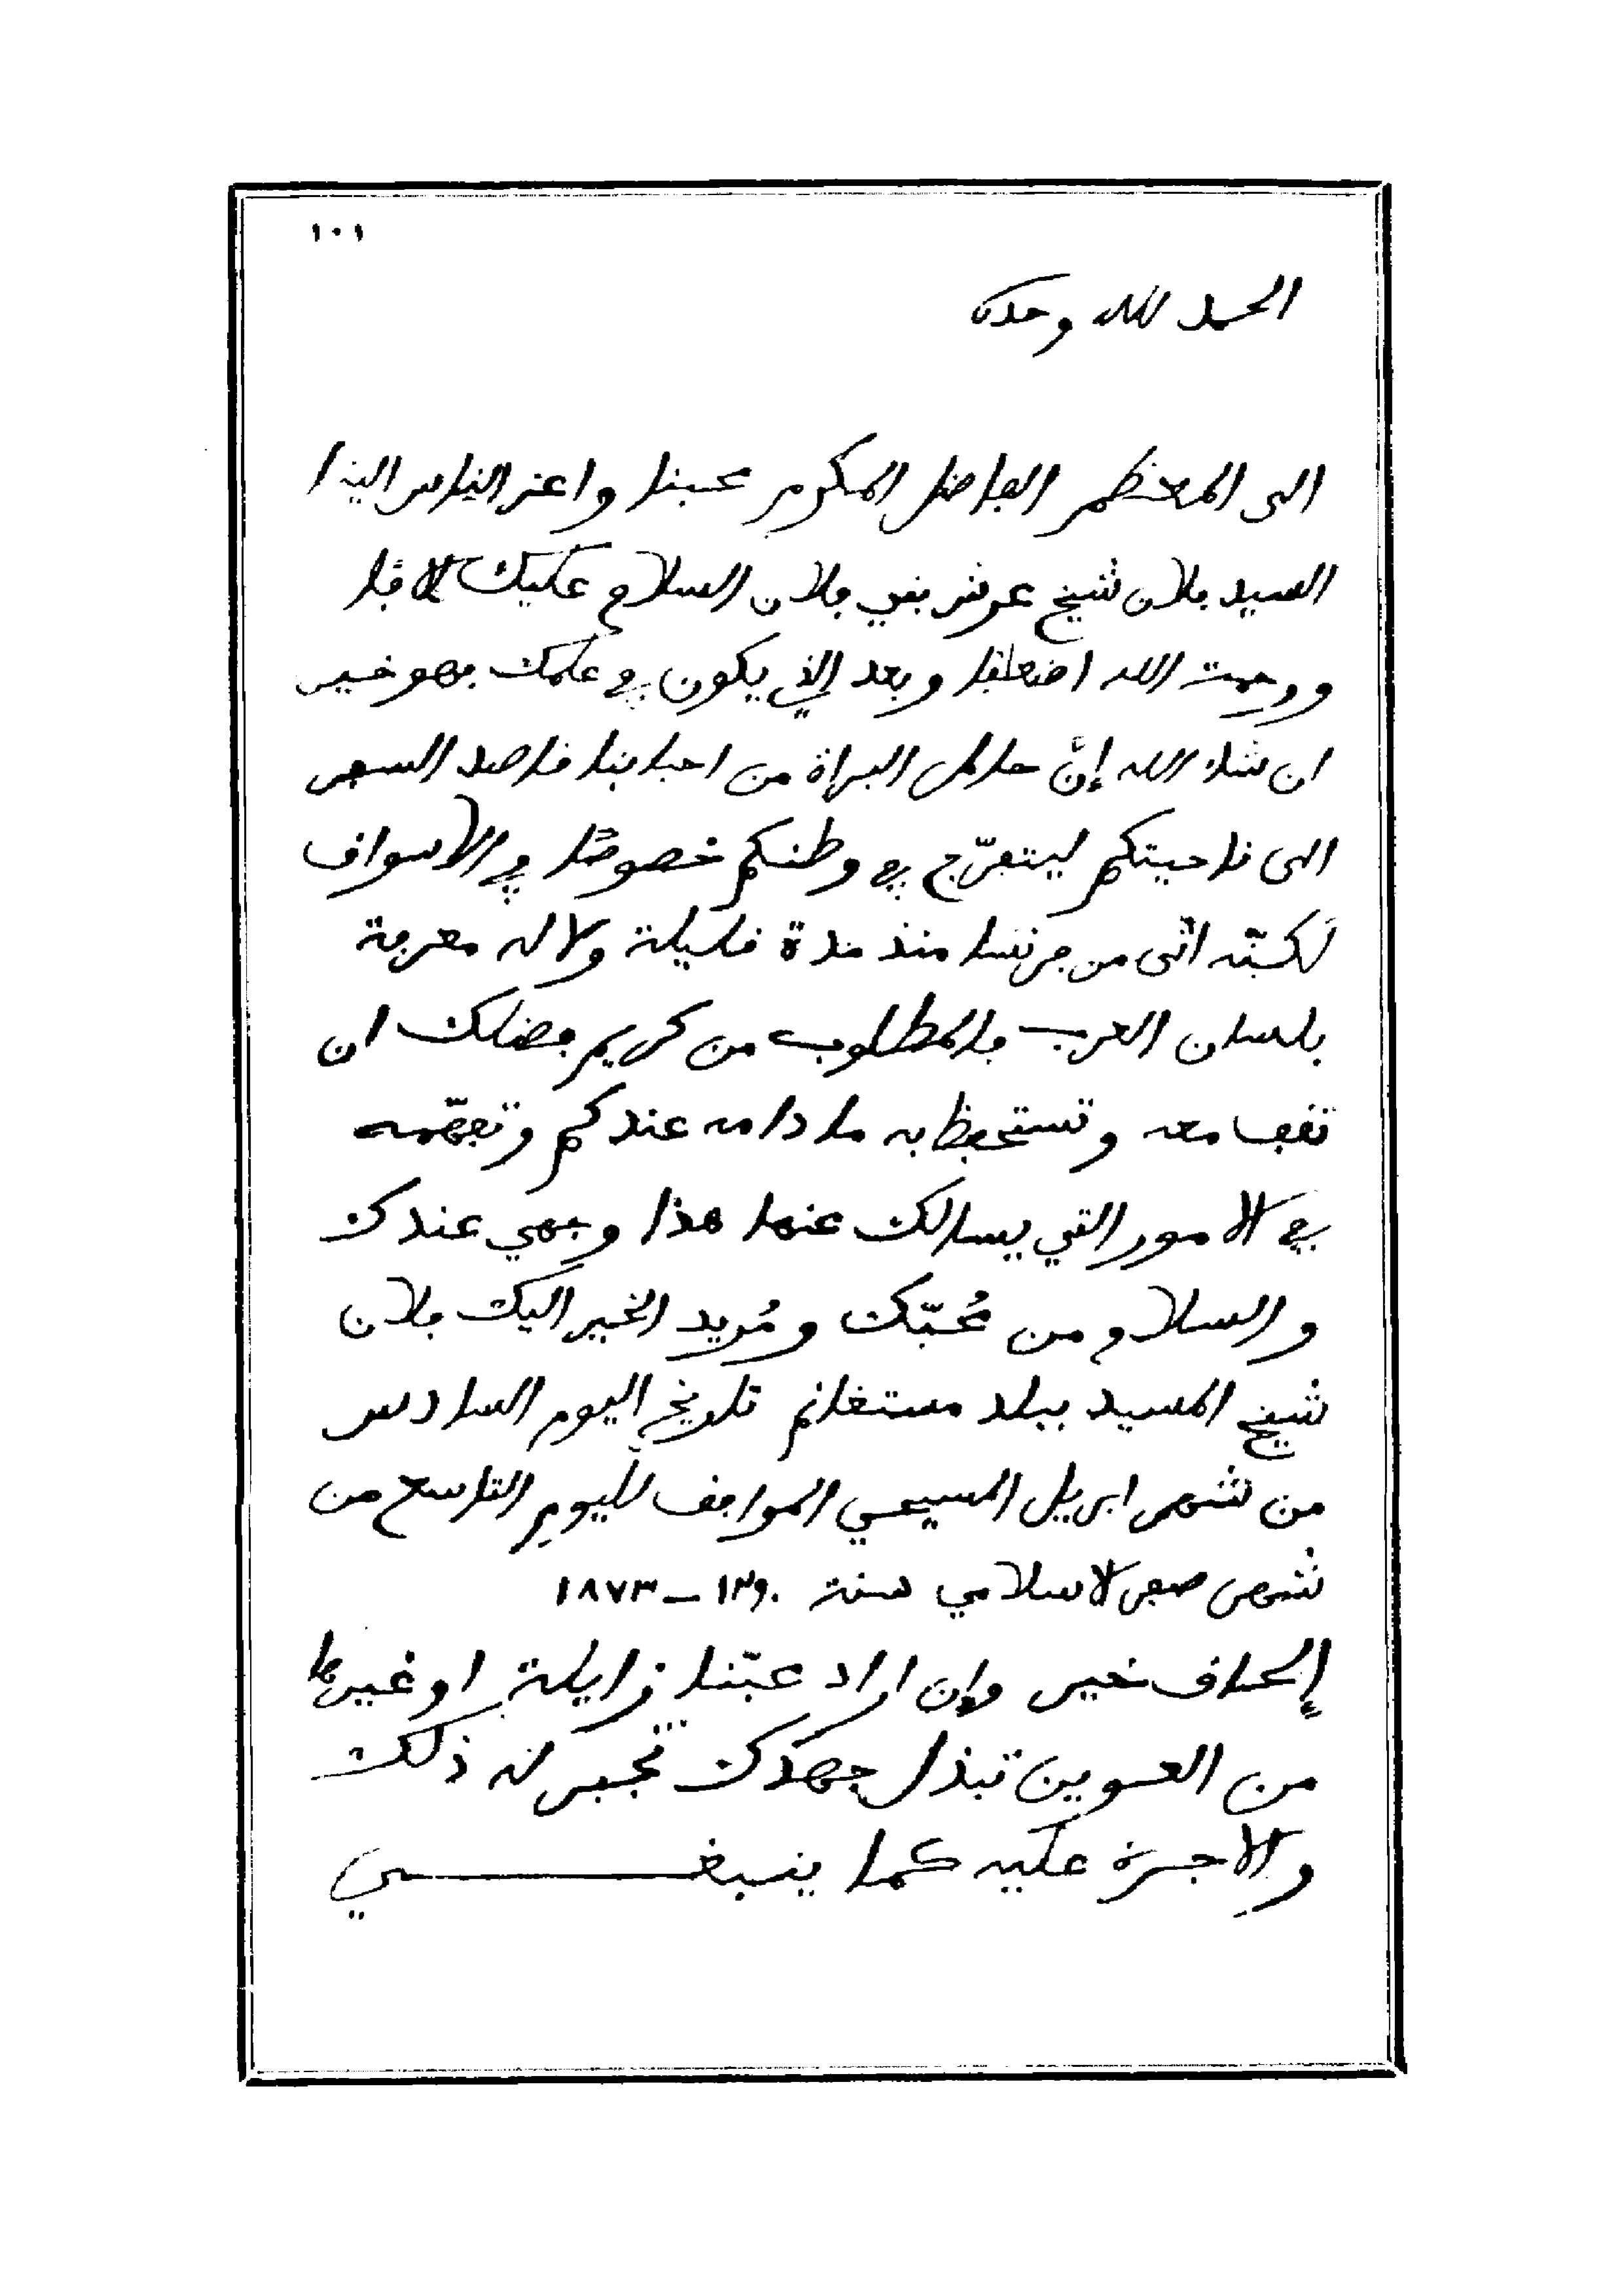 ١٠١
الحمد لله وحده
الى المعظم الفاضل المكرم محبنا واعز الناس الينا
السيد فلان شيخ عرش بني فلان السلام عليك الافا
ورحمت الله اضعافا وبعد الذي يكون في علمك فهو خير
ان شاء الله إنّ حامل البراة من احبابنا قاصد السفر
الى ناحيتكم ليتفرّج في وطنكم خصوصًا في الاسواق
لكنّه اتى من فرنسا منذ مدة قليلة ولا له معرفة
بلسان العرب فالمطلوب من كريم فضلك ان
تقف معه وتستحفظ به ما دامه عندكم وتفهّمه
في الامور التي يسالك عنها هذا وفهي عندك
والسلام من مُحبّك ومُريد الخير اليك فلان
شيخ المسيد ببلد مستغانم تاريخ اليوم السادس
من شهر ابريل المسيحي الموافق لليوم التاسع من
شهر صفر الاسلامي سنة ١٢٩٠ – ١٨٧٣
إلحاق خير وان اراد محبّنا زايلة او غيرها
من العوين تبذل جهدك تجبر له ذلك
والاجرة عليه كما ينبغي